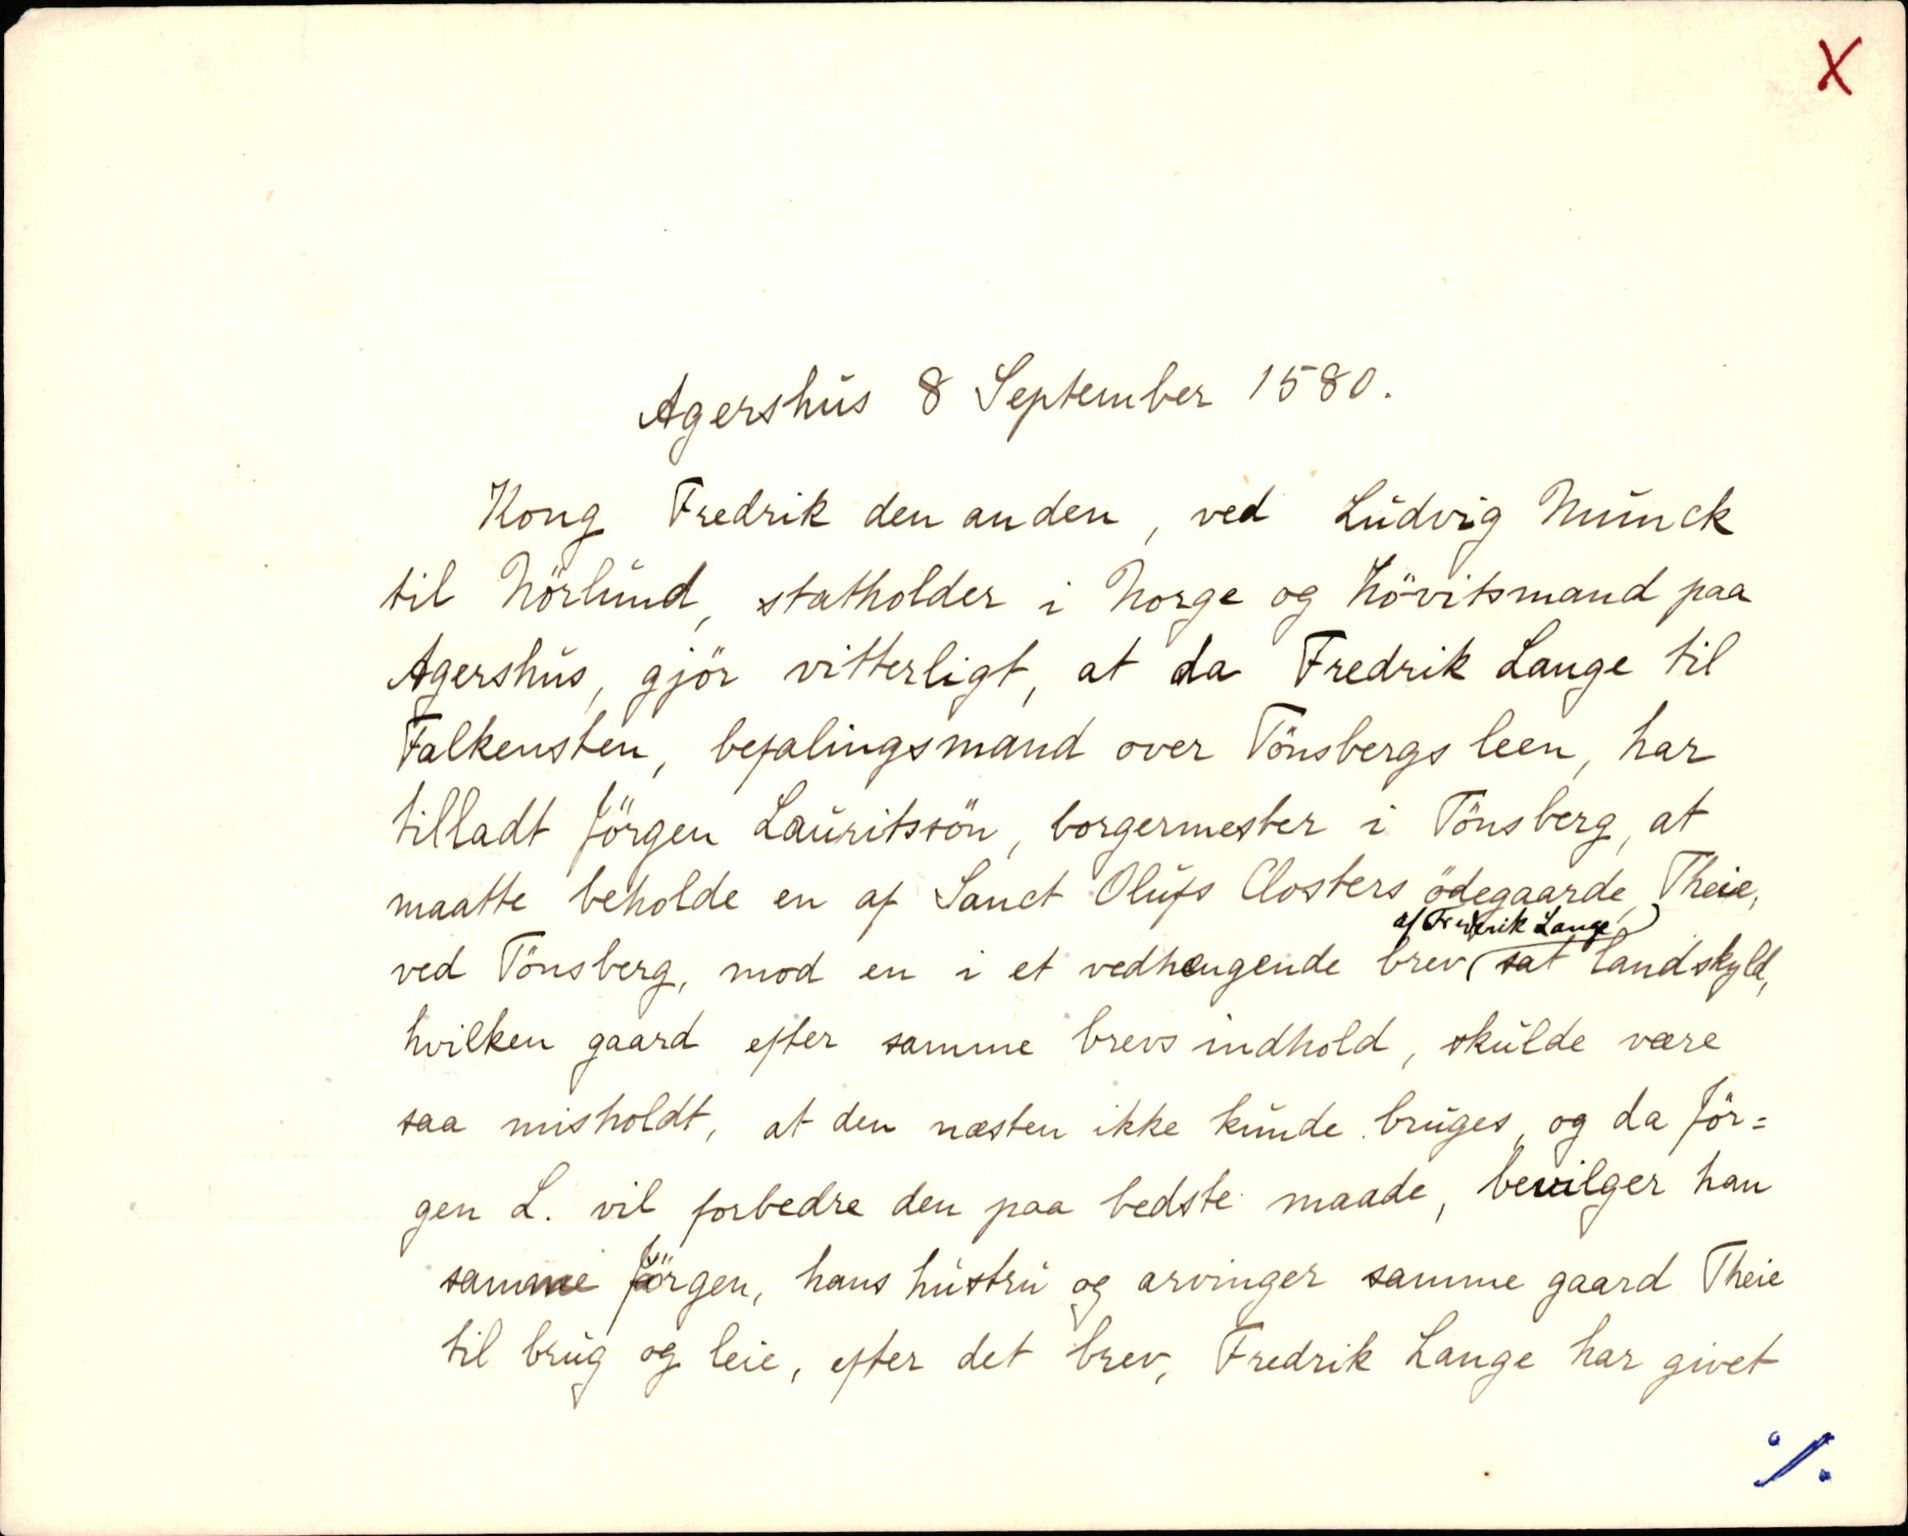 X
Agershus 8 September 1580.
Kong Fredrik den anden, ved Ludvig Munck
til Nörlund, statholder i Norge og Hövitsmand paa
Agershus, gjör vitterligt, at da Fredrik Lange til
Falkensten, befalingsmand over Tönsbergs leen, har
tilladt Jörgen Lauritssön, borgermester i Tönsberg, at
maatte beholde en af Sanct Olufs Closters ödegaarde, Theie,
af Fredrik Lange
ved Tönsberg, mod en i et vedhængende brev sat landskyld,
hvilken gaard efter samme brevs indhold, skulde være
saa misholdt, at den næsten ikke kunde bruges, og da Jör=
gen L. vil forbedre den paa bedste maade, bevilger han
samme Jörgen, hans hustru og arvinger samme gaard Theie
til brug og leie, efter det brev, Fredrik Lange har givet
·/.